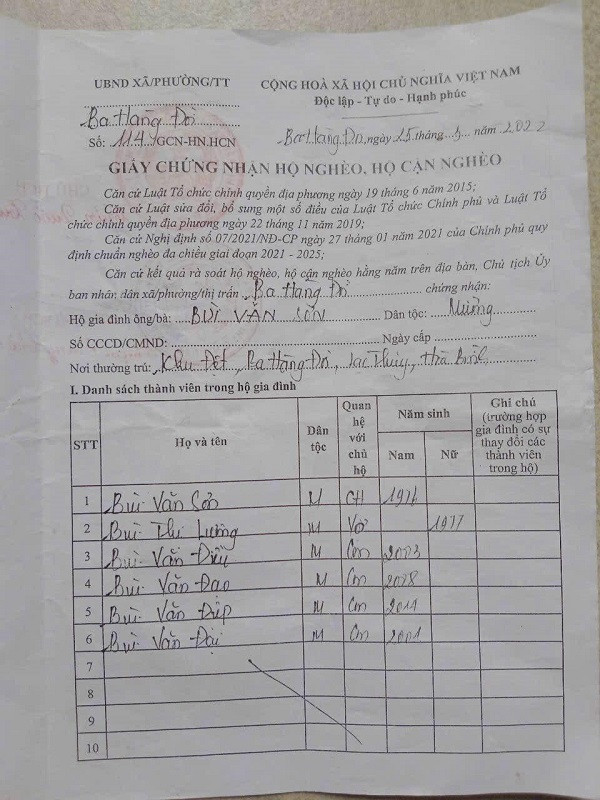 UBND XÃ/PHƯỜNG/TT
CỘNG HOÀ XÃ HỘI CHỦ NGHĨA VIỆT NAM
Độc lập - Tự do - Hạnh phúc
Ba Hàng Đồi
Số: 114/GCN-HN.HCN
Ba Hàng Đồi, ngày 25 tháng 5 năm 2022
GIẤY CHỨNG NHẬN HỘ NGHÈO, HỘ CẬN NGHÈO
Căn cứ Luật Tổ chức chính quyền địa phương ngày 19 tháng 6 năm 2015;
Căn cứ Luật sửa đổi, bổ sung một số điều của Luật Tổ chức Chính phủ và Luật Tổ
chức chính quyền địa phương ngày 22 tháng 11 năm 2019;
Căn cứ Nghị định số 07/2021/NĐ-CP ngày 27 tháng 01 năm 2021 của Chính phủ quy
định chuẩn nghèo đa chiều giai đoạn 2021 - 2025;
Căn cứ kết quả rà soát hộ nghèo, hộ cận nghèo hằng năm trên địa bàn, Chủ tịch Ủy
ban nhân dân xã/phường/thị trấn Ba Hàng Đồi chứng nhận:
Hộ gia đình ông/bà: BÙI VĂN SƠN Dân tộc: Mường
Số CCCD/CMND: Ngày cấp
Nơi thường trú: Khu Ba Hàng Đồi, Lạc Thủy, Hòa Bình
I. Danh sách thành viên trong hộ gia đình
STT Họ và tên Dân tộc Quan hệ với chủ hộ Năm sinh Ghi chú (trường hợp gia đình có sự thay đổi các thành viên trong hộ)
Nam Nữ
1 Bùi Văn Sơn M CH
2 Bùi Thị Lương M Vợ 1977
3 Bùi Văn M Con 2003
4 Bùi Văn Đạo M Con 2008
5 Bùi Văn M Con
6 Bùi Văn M Con 2001
7
8
9
10